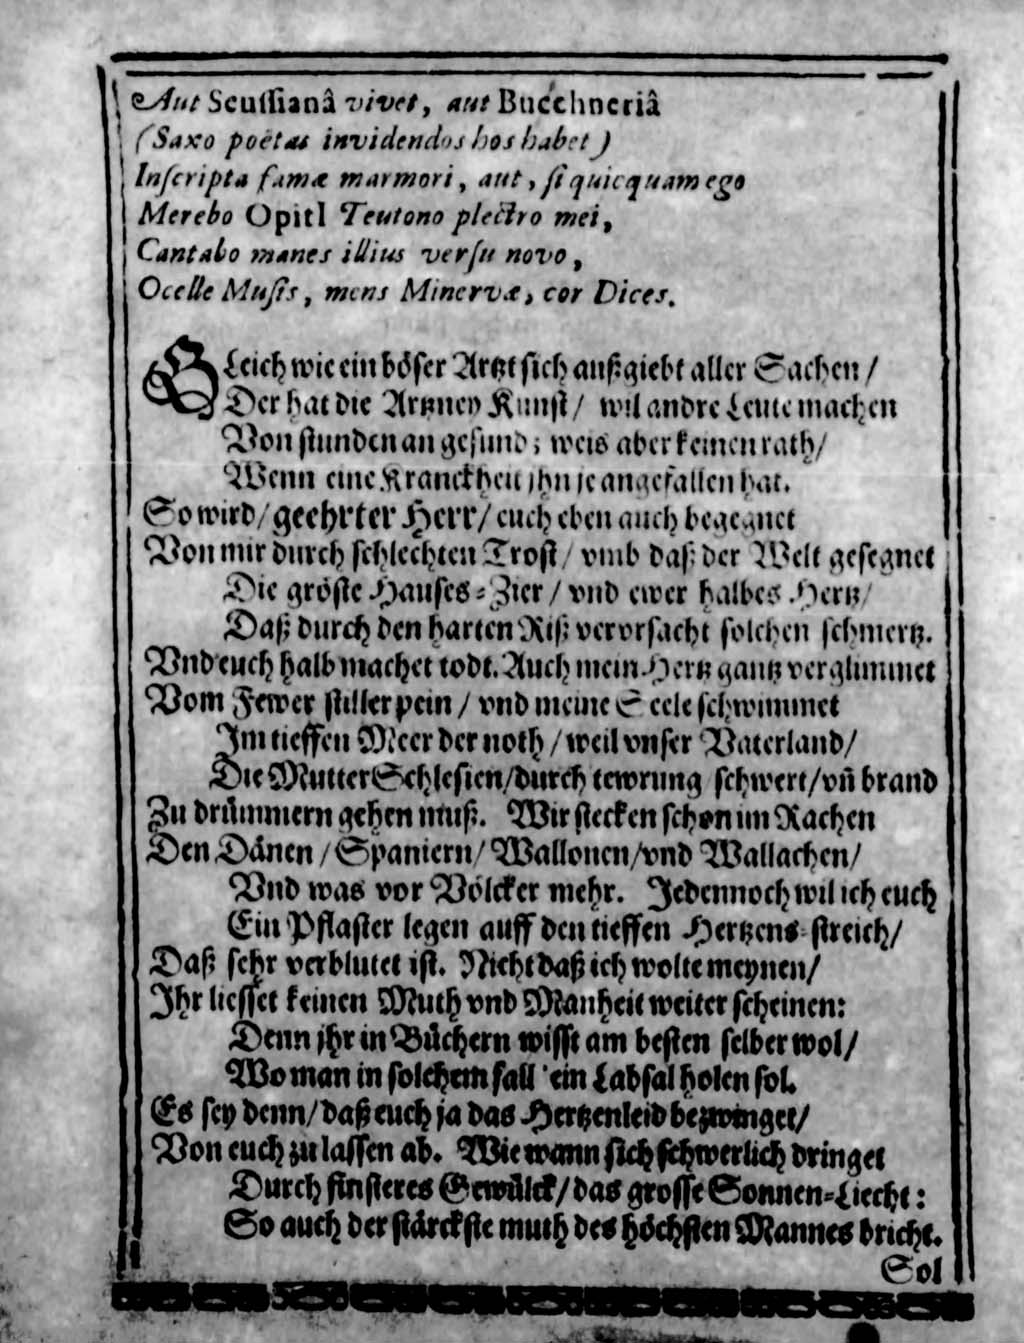 Aut Seussianâ vivet, aut Bucchneriâ
(Saxo poëtas invidendos hos habet)
Inſcripta famæ marmori, aut, ſi quicquam ego
Merebo OpitI Teutono plectro mei,
Cantabo manes illius verſu novo,
Ocelle Muſis, mens Minervæ, cor Dices.
GLeich wie ein böſer Artzt ſich außgiebt aller Sachen /
Der hat die Artzney Kunſt / wil andre Leute machen
Von ſtunden an geſund; weis aber keinen rath/
Wenn eine Kranckheit jhn je angefallen hat.
So wird/ geehrter Herr/ euch eben auch begegnet
Von mir durch ſchlechten Troſt / vmb daß der Welt geſegnet
Die gröſte Hauſes-Zier / vnd ewer halbes Hertz/
Daß durch den harten Riß verorſacht ſolchen ſchmertz.
Vnd euch halb machet todt. Auch mein Hertz gantz verglimmet
Vom Fewer ſtiller pein / vnd meine Seele ſchwimmet
Im tieffen Meer der noth / weil vnſer Vaterland/
Die Mutter Schleſien/durch tewrung ſchwert/vñ brand
Zu drümmern gehen muß. Wir ſtecken ſchon im Rachen
Den Dänen / Spaniern/ Wallonen/vnd Wallachen/
Vnd was vor Völcker mehr. Jedennoch wil ich euch
Ein Pflaſter legen auff den tieffen Hertzens-ſtreich/
Daß ſehr verblutet iſt. Nicht daß ich wolte meynen/
Ihr lieſſet keinen Muth vnd Manheit weiter ſcheinen:
Denn jhr in Büchern wiſſt am beſten ſelber wol/
Wo man in ſolchem fall ein Labſal holen ſol.
Es ſey denn/ daß euch ja das Hertzenleid bezwinget/
Von euch zu laſſen ab. Wie wann ſich ſchwerlich dringet
Durch finſteres Gewülck/ das groſſe Sonnen-Liecht:
So auch der ſtärckſte muth des höchſten Mannes bricht.
Sol